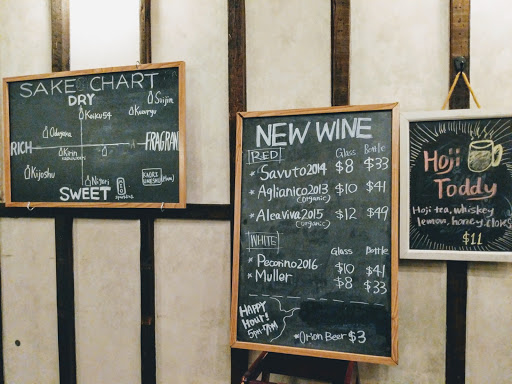 SAKE CHART
DRY
Suijin
Kiku54
Kuaryu
Otokoyama
RICH
FRAGRAN
Kirin
Kijoshu
Nigori
SWEET
KAORI
UMESHU (Plum)
NEW WINE
RED Glass Bottle
* Savuto 2014 $8 $33
* Aglianico 2013 $10 $41
(organic)
* Alea Viva 2015 $12 $49
(organic)
WHITE Glass Bottle
* Pecorino 2016 $10 $41
* Muller $8 $33
HAPPY
Hour!
5PM-7PM
* Orion Beer $3
Hoji
Toddy
Hoji tea, whiskey
lemon, honey, cloves
$11